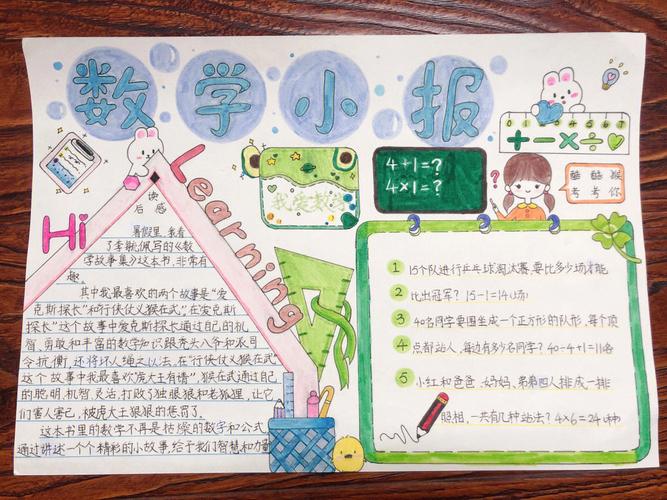 数学小报
Hi
Learning
读
后感
暑假里,我看
了李毓佩写的《数
学故事集》这本书,非常有
趣。
其中我最喜欢的两个故事是“爱
克斯探长”和“行侠仗义猴在武”,在“爱克斯
探长”这个故事中爱克斯探长通过自己的机
智,勇敢和丰富的数学知识跟秃头八爷和不司
令抗衡,还将坏人绳之以法,在“行侠仗义猴在武”
这个故事中我最喜欢“虎大王有错”,猴在武通过自己
的聪明,机智,灵活,打败了独眼狼和老狐狸,让它
们害人害己,被虎大王狠狠的惩罚了。
这本书里的数学不再是枯燥的数字和公式
通过讲述一个个精彩的小故事,给予我们智慧和力量
我爱数学
4+1=?
4×1=?
0 1
5 6 7
+ − × ÷
酷酷猴
考考你
1 15个队进行乒乓球淘汰赛,要比多少场才能
2 比出冠军? 15-1=14(场)
3 40名同学要围坐成一个正方形的队形,每个顶
4 点都站人,每边有多少名同学? 40÷4+1=11(名
5 小红和爸爸、妈妈、弟弟四人排成一排
照相,一共有几种站法? 4×6=24(种